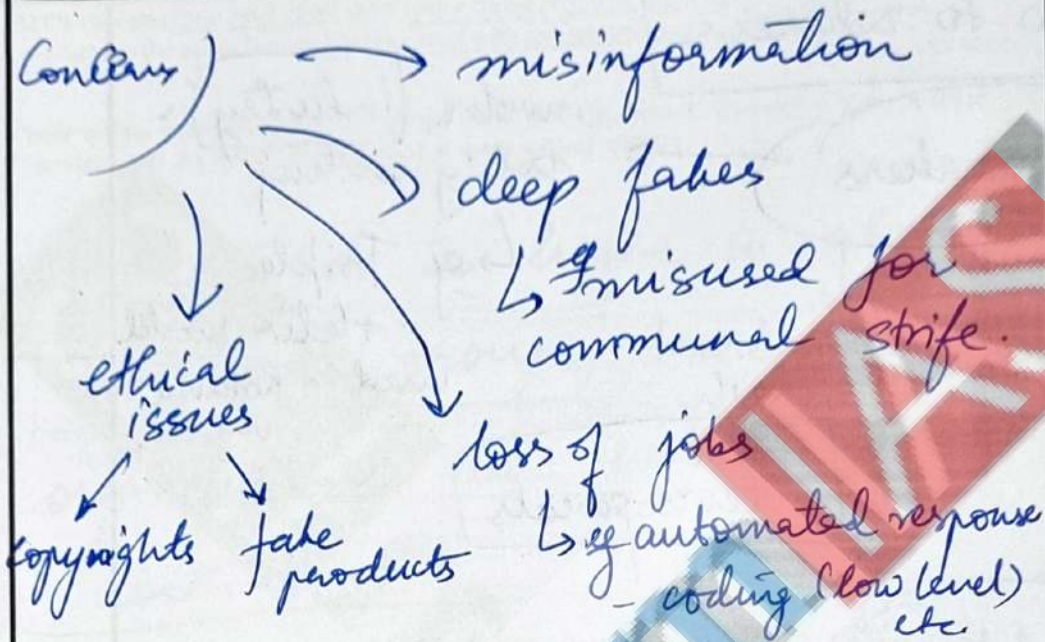 Concerns) → misinformation
deep fakes
↳ eg misused for
communal strife.
ethical
issues
copyrights fake
products
loss of jobs
↳ eg automated response
- coding (low level)
etc
IAS